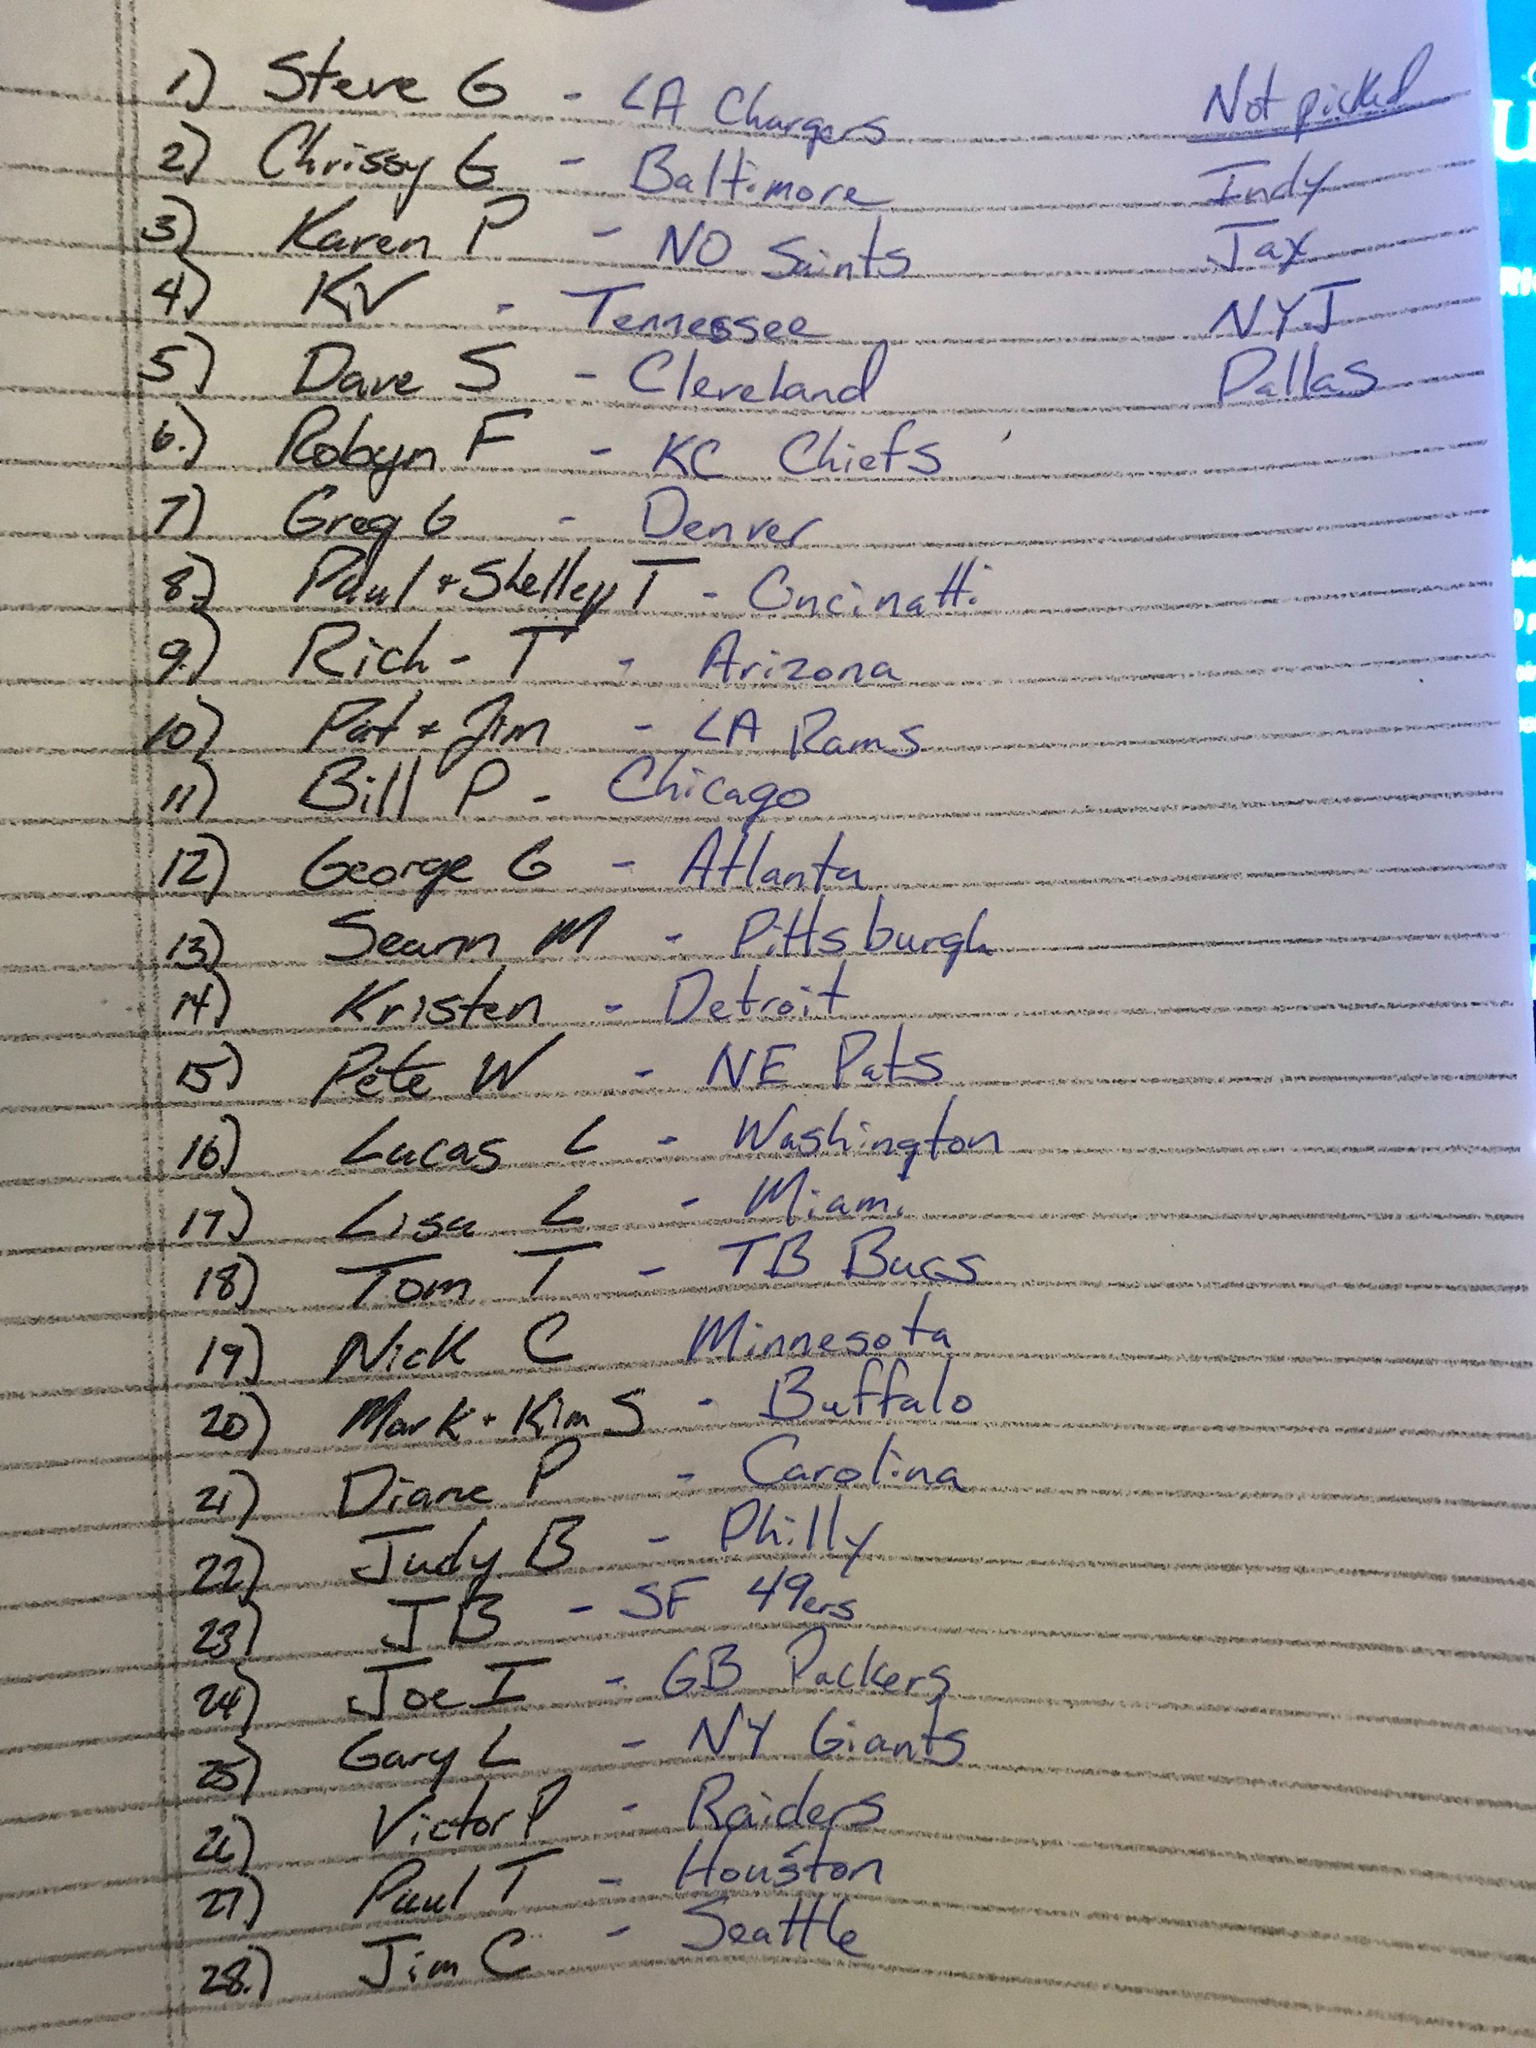 1) Steve G - LA Chargers
2) Chrissy G - Baltimore
3) Karen P - NO Saints
4) KV - Tennessee
5) Dave S - Cleveland
6.) Robyn F - KC Chiefs
7) Greg G - Denver
8) Paul + Shelley T - Cincinatti
9.) Rich - T - Arizona
10) Pat + Jim - LA Rams
11) Bill P - Chicago
12) George G - Atlanta
13) Seann M - Pittsburgh
14) Kristen - Detroit
15) Pete W - NE Pats
16) Lucas L - Washington
17) Lisa L - Miami
18) Tom T - TB Bucs
19) Nick C Minnesota
20) Mark + Kim S - Buffalo
21) Diane P - Carolina
22) Judy B - Philly
23) JB - SF 49ers
24) Joe I - GB Packers
25) Gary L - NY Giants
26) Victor P - Raiders
27) Paul T - Houston
28.) Jim C - Seattle
Not picked
Indy
Jax
NYJ
Dallas